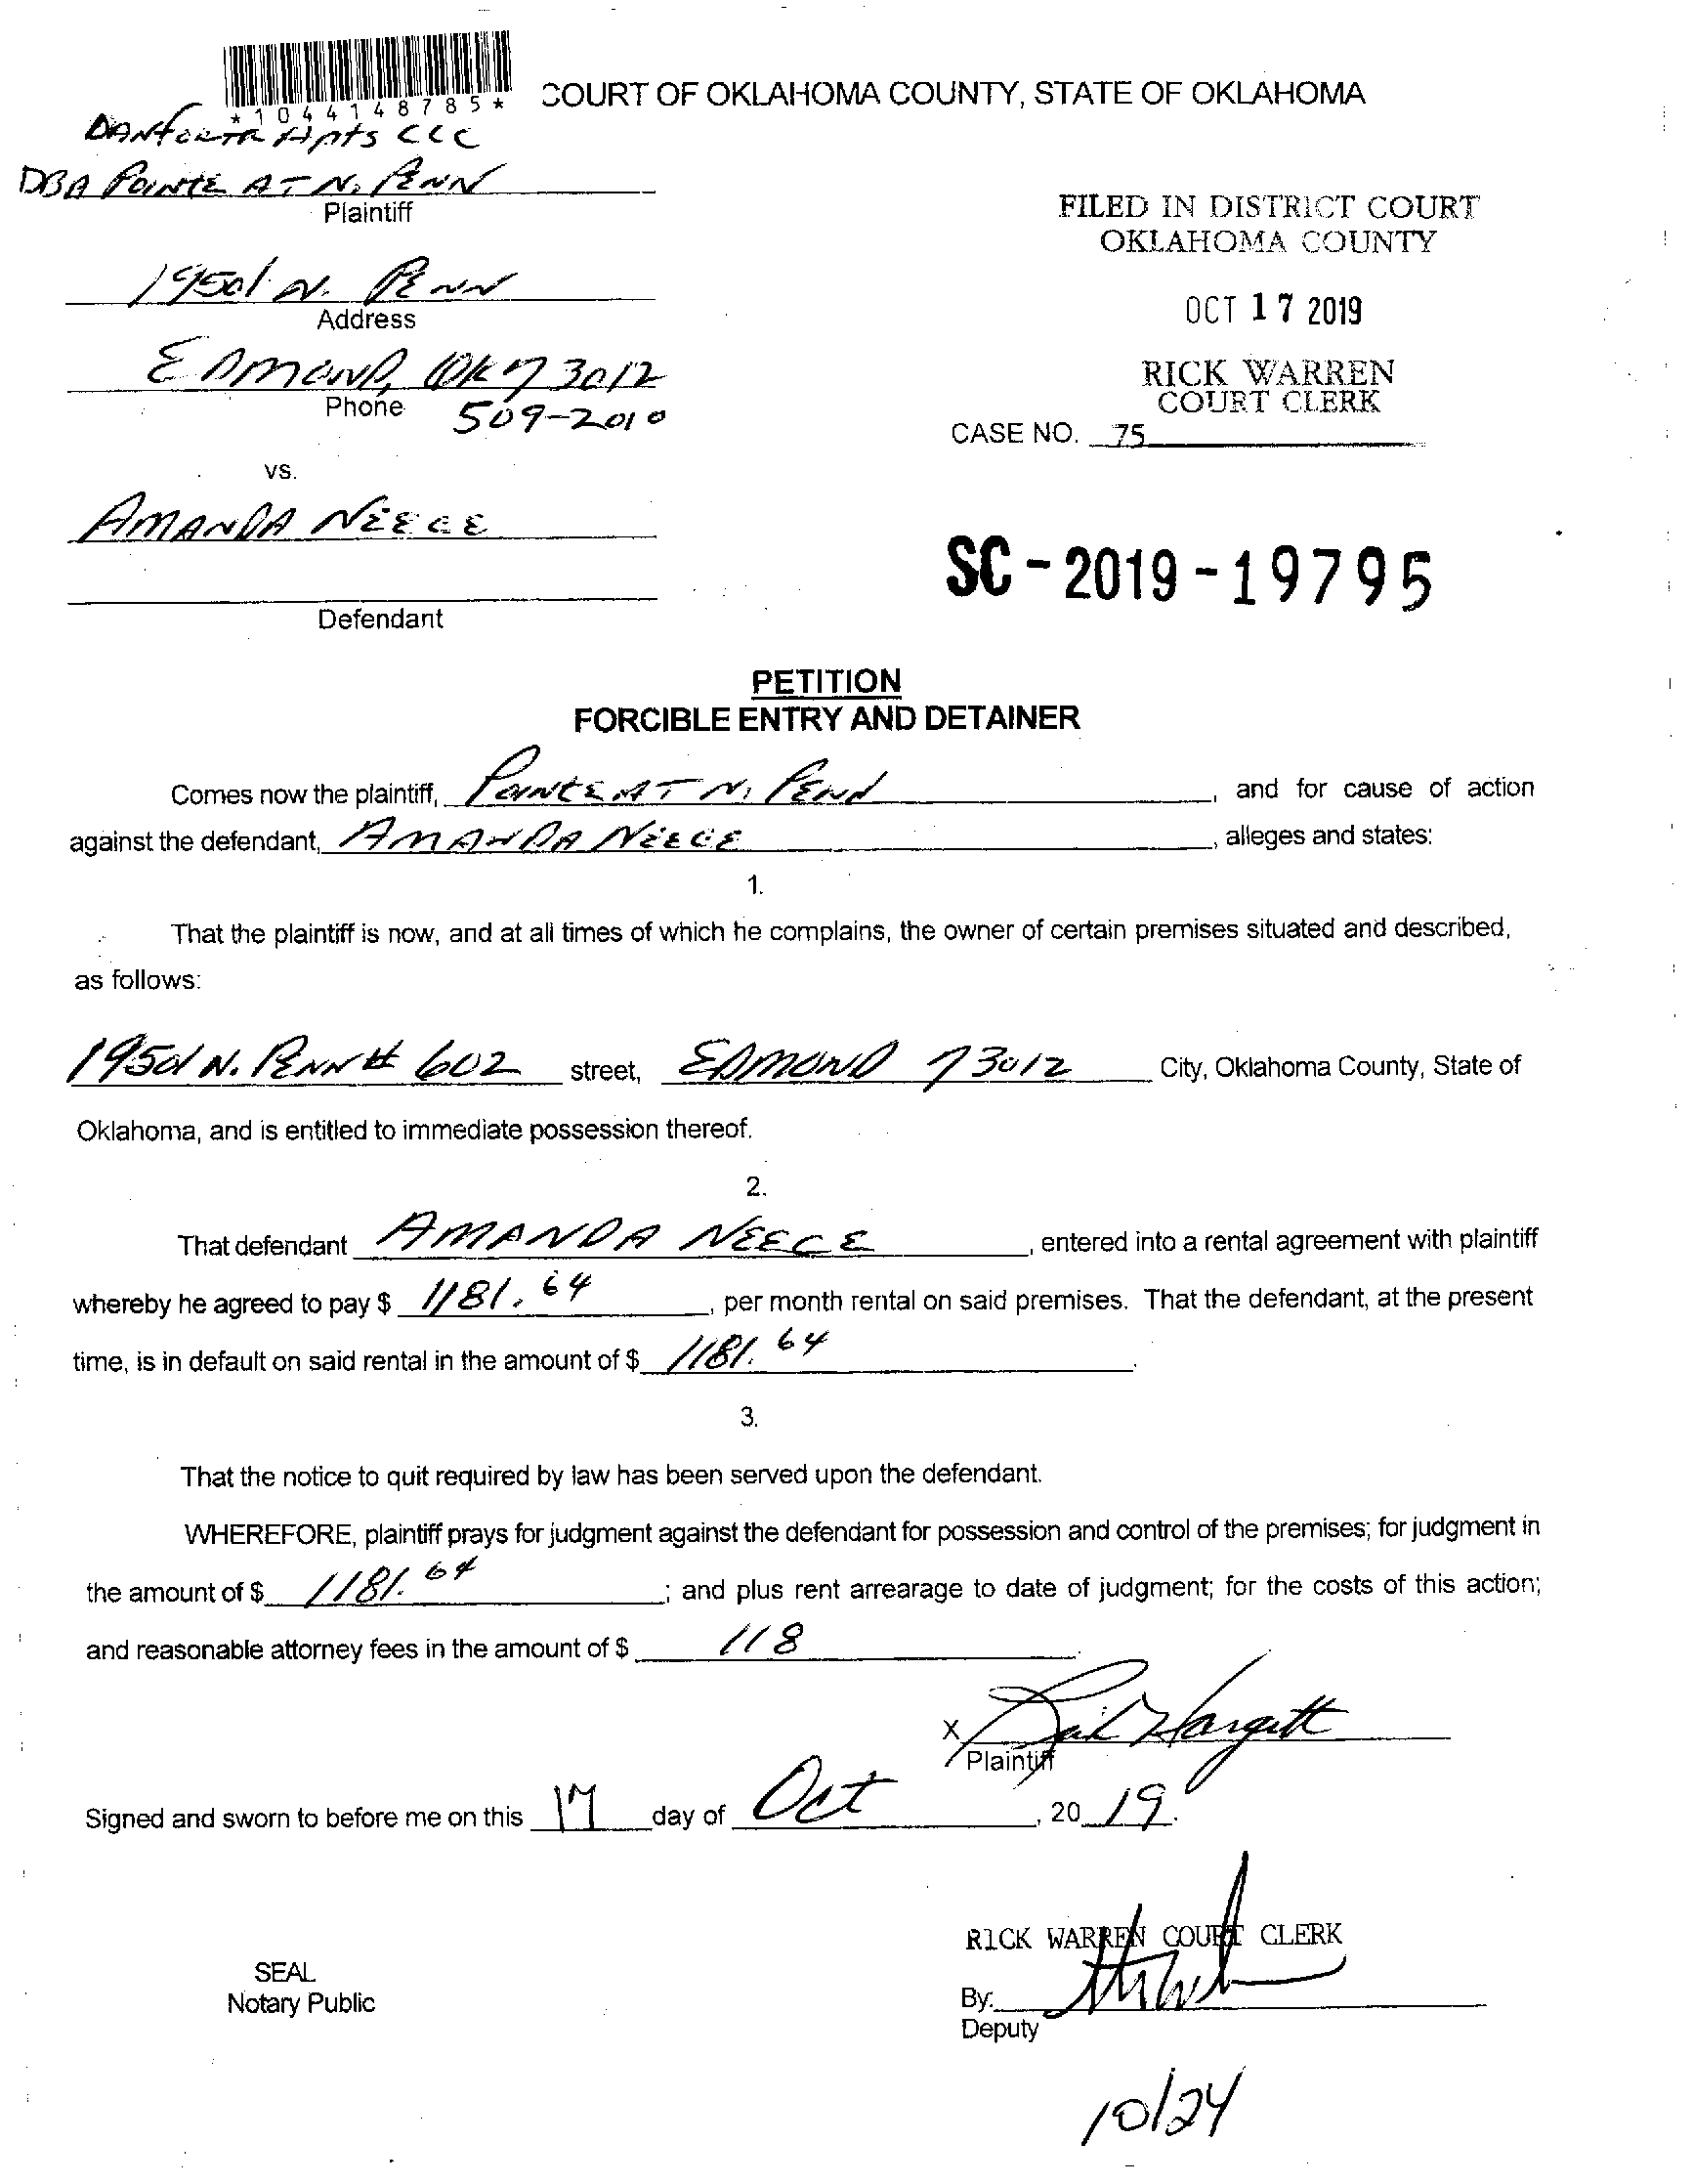 *1044148785*
COURT OF OKLAHOMA COUNTY, STATE OF OKLAHOMA
DANFORTH Apts LLC
DBA POINTE AT N. PENN
Plaintiff
19501 N. PENN
Address
EDMOND, OK 73012
Phone 509-2010
FILED IN DISTRICT COURT
OKLAHOMA COUNTY
OCT 17 2019
RICK WARREN
COURT CLERK
CASE NO. 75
vs.
AMANDA NEECE
Defendant
SC-2019-19795
PETITION
FORCIBLE ENTRY AND DETAINER
Comes now the plaintiff, POINTE AT N. PENN, and for cause of action
against the defendant, AMANDA NEECE, alleges and states:
1.
That the plaintiff is now, and at all times of which he complains, the owner of certain premises situated and described,
as follows:
19501 N. PENN # 602 street, EDMOND 73012 City, Oklahoma County, State of
Oklahoma, and is entitled to immediate possession thereof.
2.
That defendant AMANDA NEECE, entered into a rental agreement with plaintiff
whereby he agreed to pay $ 1181.64, per month rental on said premises. That the defendant, at the present
time, is in default on said rental in the amount of $ 1181.64.
3.
That the notice to quit required by law has been served upon the defendant.
WHEREFORE, plaintiff prays for judgment against the defendant for possession and control of the premises; for judgment in
the amount of $ 1181.64; and plus rent arrearage to date of judgment; for the costs of this action;
and reasonable attorney fees in the amount of $ 118.
X Gail Hargett
Plaintiff
Signed and sworn to before me on this 17 day of Oct, 20 19.
RICK WARREN COURT CLERK
SEAL
Notary Public
By:
Deputy
10/24